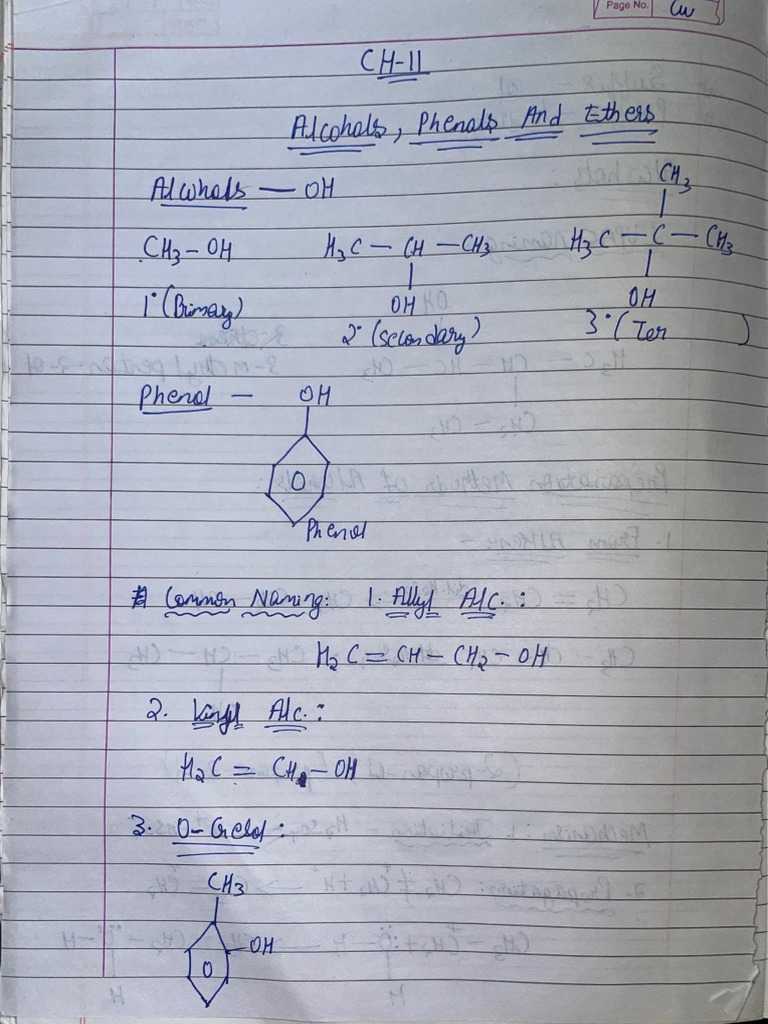 Page No.
CH-11
Alcohols, Phenols And Ethers
Alcohols — OH
CH3
CH3 – OH H3C — CH — CH3 H3C — C — CH3
OH OH
1° (Primary) 2° (Secondary) 3° (Ter )
Phenol — OH
Phenol
# Common Naming: 1. Allyl Alc.:
H2C = CH – CH2 – OH
2. Vinyl Alc.:
H2C = CH – OH
3. O-Cresol:
CH3
OH